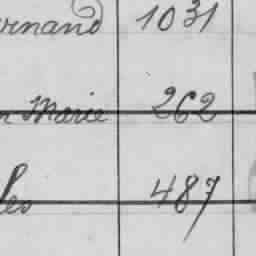 ernand 1031
n Marie 262
les 487